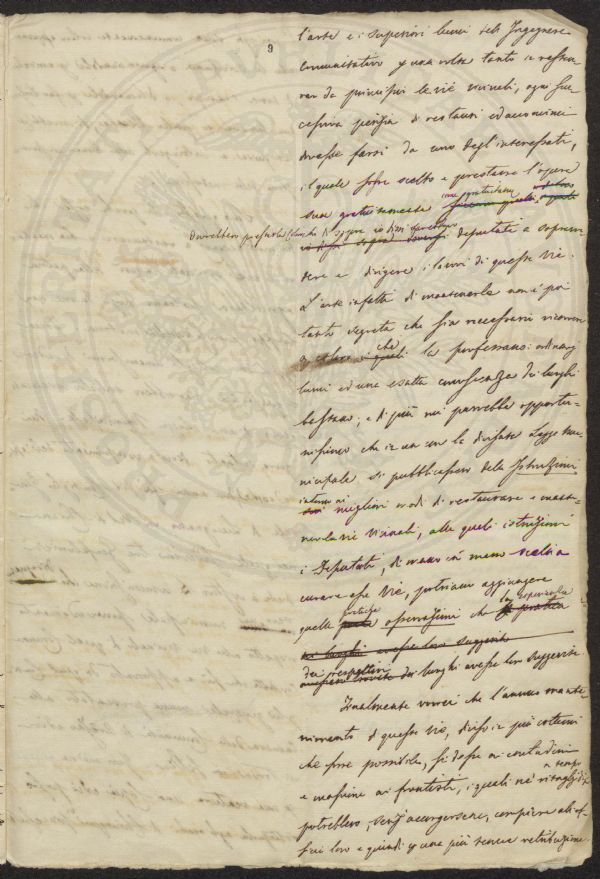 9
l'arte e i superiori lumi dell'Ingegnere
comunitativo p una volta tanto in restau-
rar da principii le vie vicinali, ogni suc-
cessiva perizia di restauri ed acconcimi
dovesse farsi da uno degl'interessati,
il quale fosse scelto a prestare l'opera
sua gratuitamente
dovrebbero sopra deputati a soprin-
dere e dirigere i lavori di queste vie.
L'arte infatti di mantenerle non è poi
tanto segreta che sia necessario ricorrere
a coloro che la professano: ordinarj
lumi ed una esatta conoscenza dei luoghi
bastano; e di più mi parrebbe opportu-
nissimo che in un con la divisata Legge mu-
nicipale si pubblicassero delle Istruzioni
intorno ai migliori modi di restaurare e mante-
ner le vie vicinali, alle quali istruzioni
i Deputati, di mano in mano scelti a
curare esse vie, potrian aggiungere
quelle pratiche osservazioni che la esperienza
dei respettivi luoghi avesse loro suggerite
Finalmente vorrei che l'annuo mante-
nimento di queste vie, diviso in più cottimi
che fosse possibile, si dasse ai contadini
e massime ai frontisti, i quali ne' ritagli di tempo
potrebbero, senz'accorgersene, compiere alli uf-
fizi loro e quindi p una più tenue retribuzione